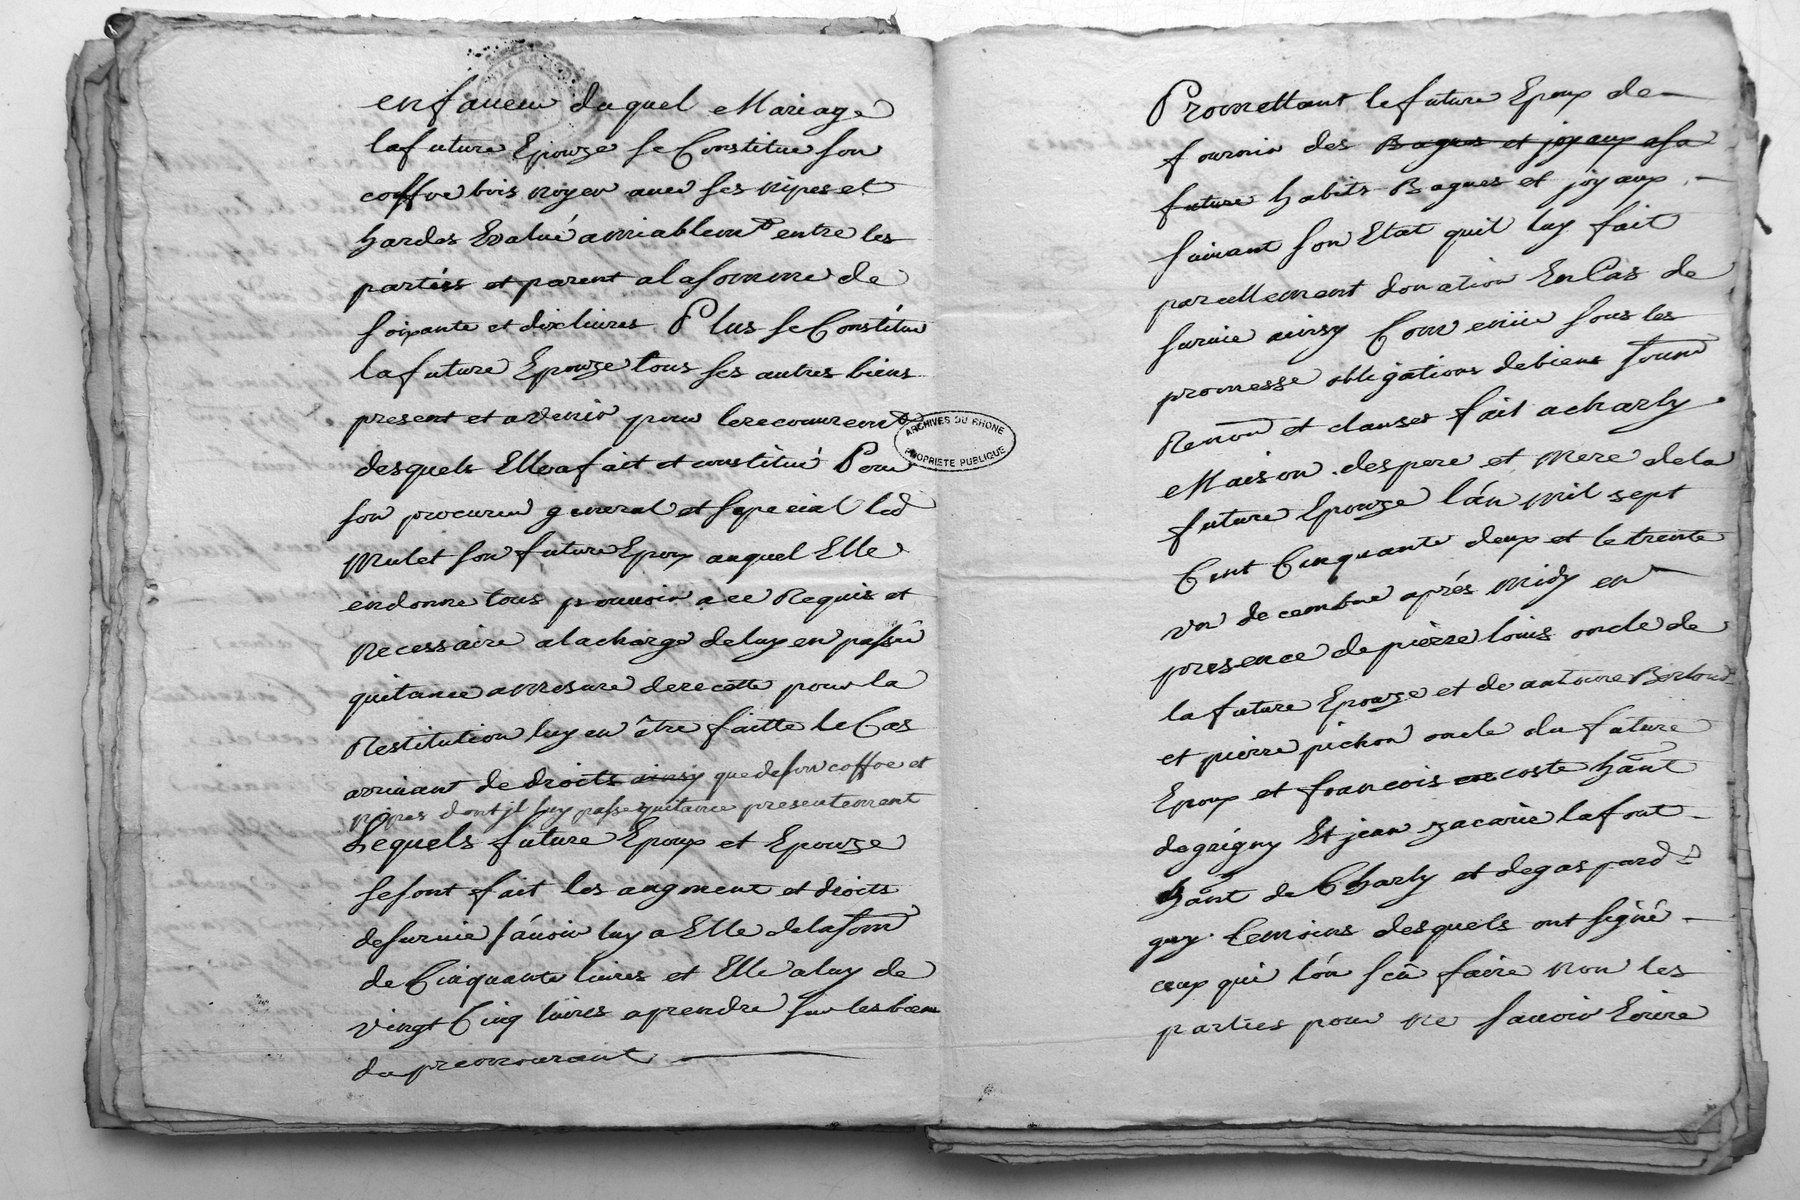 en faueur duquel Mariage
la future Epouze se Constitue son
coffre bois noyer auec ses nipes et
hardes Evalué amiablemt entre les
parties et parent a la somme de
soixante et dix liures Plus se Constitue
la future Epouze tous ses autres biens
present et avenir pour le recouuremt
desquels Elle a fait et constitué Pour
son procureur general et special led
Mulet son future Epoux auquel Elle
en donne tous pouuoir a ce Requis et
necessaire a la charge de luy en passer
quitance a mesure de recette pour la
Restitution luy en être faitte le Cas
arriuant de droits ainsy que de son coffre et
nipes dont jl luy passe quitance presentement
Lequels future Epoux et Epouze
se sont fait les augment et droits
de suruie sáuoir luy a Elle de la som
de Cinquante liures et Elle a luy de
vingt Cinq liures a prendre sur les biens
du premourant
ARCHIVES DU RHONE
PROPRIETE PUBLIQUE
Promettant le future Epoux de
fournir des Bagues et joyaux a sa
future habits Bagues et joyaux
suiuant son Etat quil luy fait
pareillement donation En Cas de
suruie ainsy Conuenüe sous les
promesse obligations de biens soum
Renon et clauses fait a charly
Maison des pere et mere de la
future Epouze lán mil sept
Cent Cinquante deux et le trente
vn decembre aprés midy en
presence de pierre louis oncle de
la future Epouze et de antoine Berloud
et pierre pichon oncle du future
Epoux et francois coste hant
de grigny Et jean zacarie lafont
hant de Charly et de gaspard
guy temoins desquels ont signé
ceux qui lón sçu faire non les
parties pour ne sauoir Ecrire